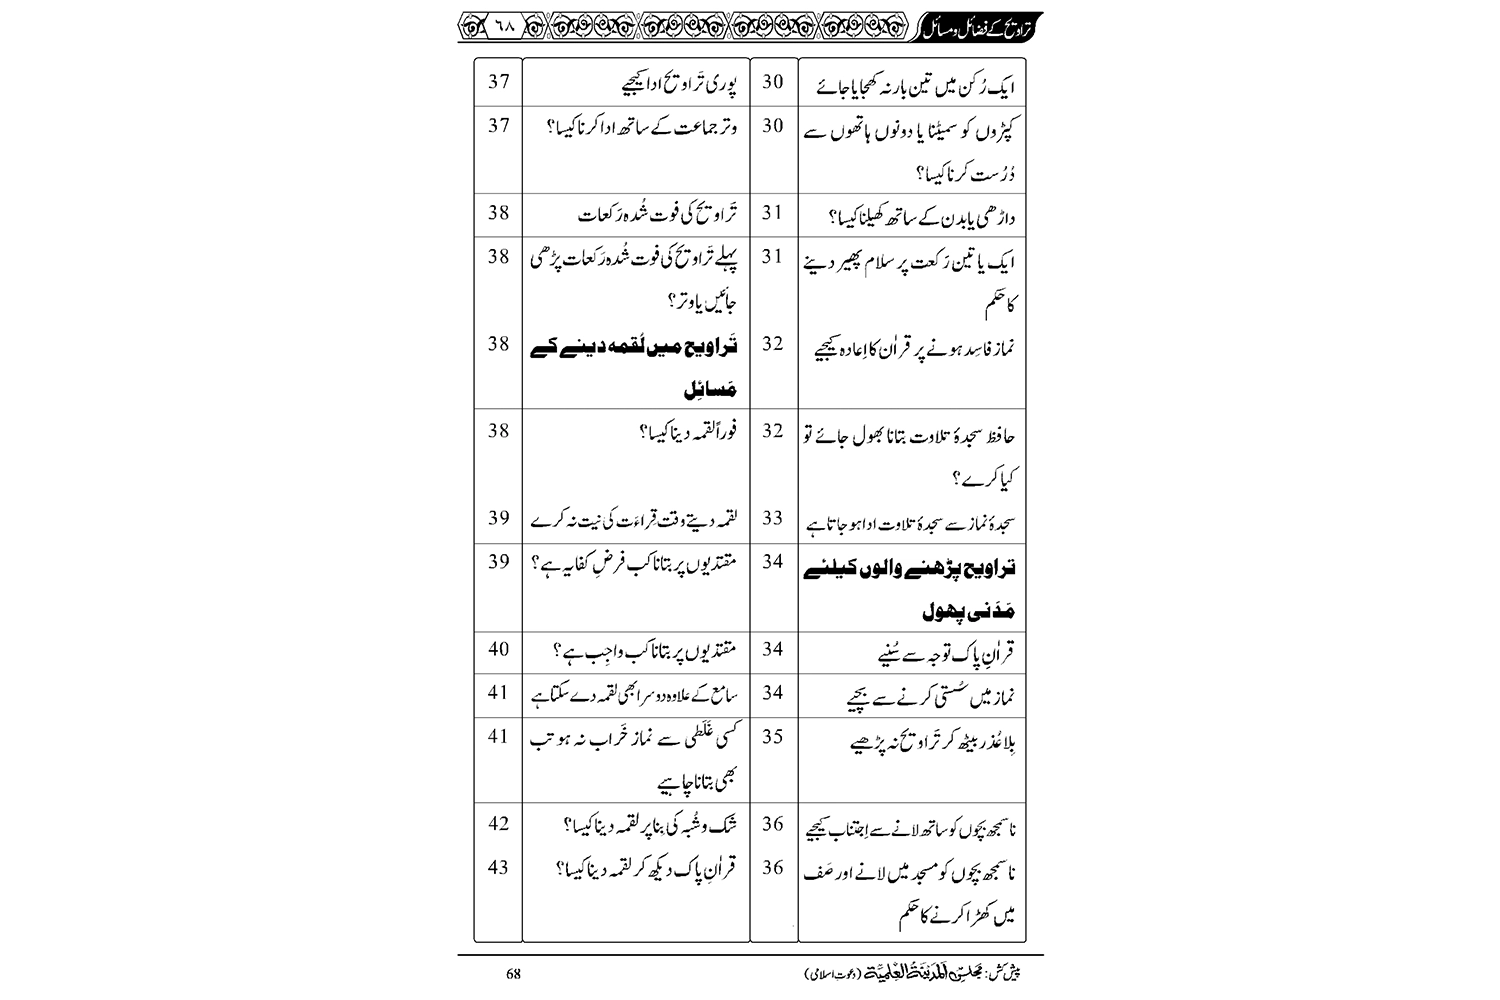 تراویح کے فضائل و مسائل ٦٨
ایک رُکن میں تین بار نہ کھجایا جائے 30
کپڑوں کو سمیٹنا یا دونوں ہاتھوں سے
دُرُست کرنا کیسا؟ 30
داڑھی یا بدن کے ساتھ کھیلنا کیسا؟ 31
ایک یا تین رَکعت پر سلام پھیر دینے
کا حکم 31
نماز فاسِد ہونے پر قراٰن کا اِعادہ کیجیے 32
حافظ سجدۂ تلاوت بتانا بھول جائے تو
کیا کرے؟ 32
سجدۂ نماز سے سجدۂ تلاوت ادا ہو جاتا ہے 33
تراویح پڑھنے والوں کیلئے
مَدَنی پھول 34
قراٰنِ پاک توجہ سے سُنیے 34
نماز میں سُستی کرنے سے بچیے 34
بِلا عُذر بیٹھ کر تَراویح نہ پڑھیے 35
ناسمجھ بچوں کو ساتھ لانے سے اِجتناب کیجیے 36
ناسمجھ بچوں کو مسجد میں لانے اور صَف
میں کھڑا کرنے کا حکم 36
پوری تَراویح ادا کیجیے 37
وتر جماعت کے ساتھ ادا کرنا کیسا؟ 37
تَراویح کی فوت شُدہ رَکعات 38
پہلے تَراویح کی فوت شُدہ رَکعات پڑھی
جائیں یا وتر؟ 38
تَراویح میں لُقمہ دینے کے
مَسائِل 38
فوراً لقمہ دینا کیسا؟ 38
لقمہ دیتے وقت قِراءَت کی نیت نہ کرے 39
مقتدیوں پر بتانا کب فرضِ کفایہ ہے؟ 39
مقتدیوں پر بتانا کب واجِب ہے؟ 40
سامع کے علاوہ دوسرا بھی لقمہ دے سکتا ہے 41
کسی غَلَطی سے نماز خَراب نہ ہو تب
بھی بتانا چاہیے 41
شک و شُبہ کی بِنا پر لقمہ دینا کیسا؟ 42
قراٰنِ پاک دیکھ کر لقمہ دینا کیسا؟ 43
پیش کش: مجلس اَلْمَدِیْنَۃُ الْعِلْمِیَّۃ (دعوتِ اسلامی) 68